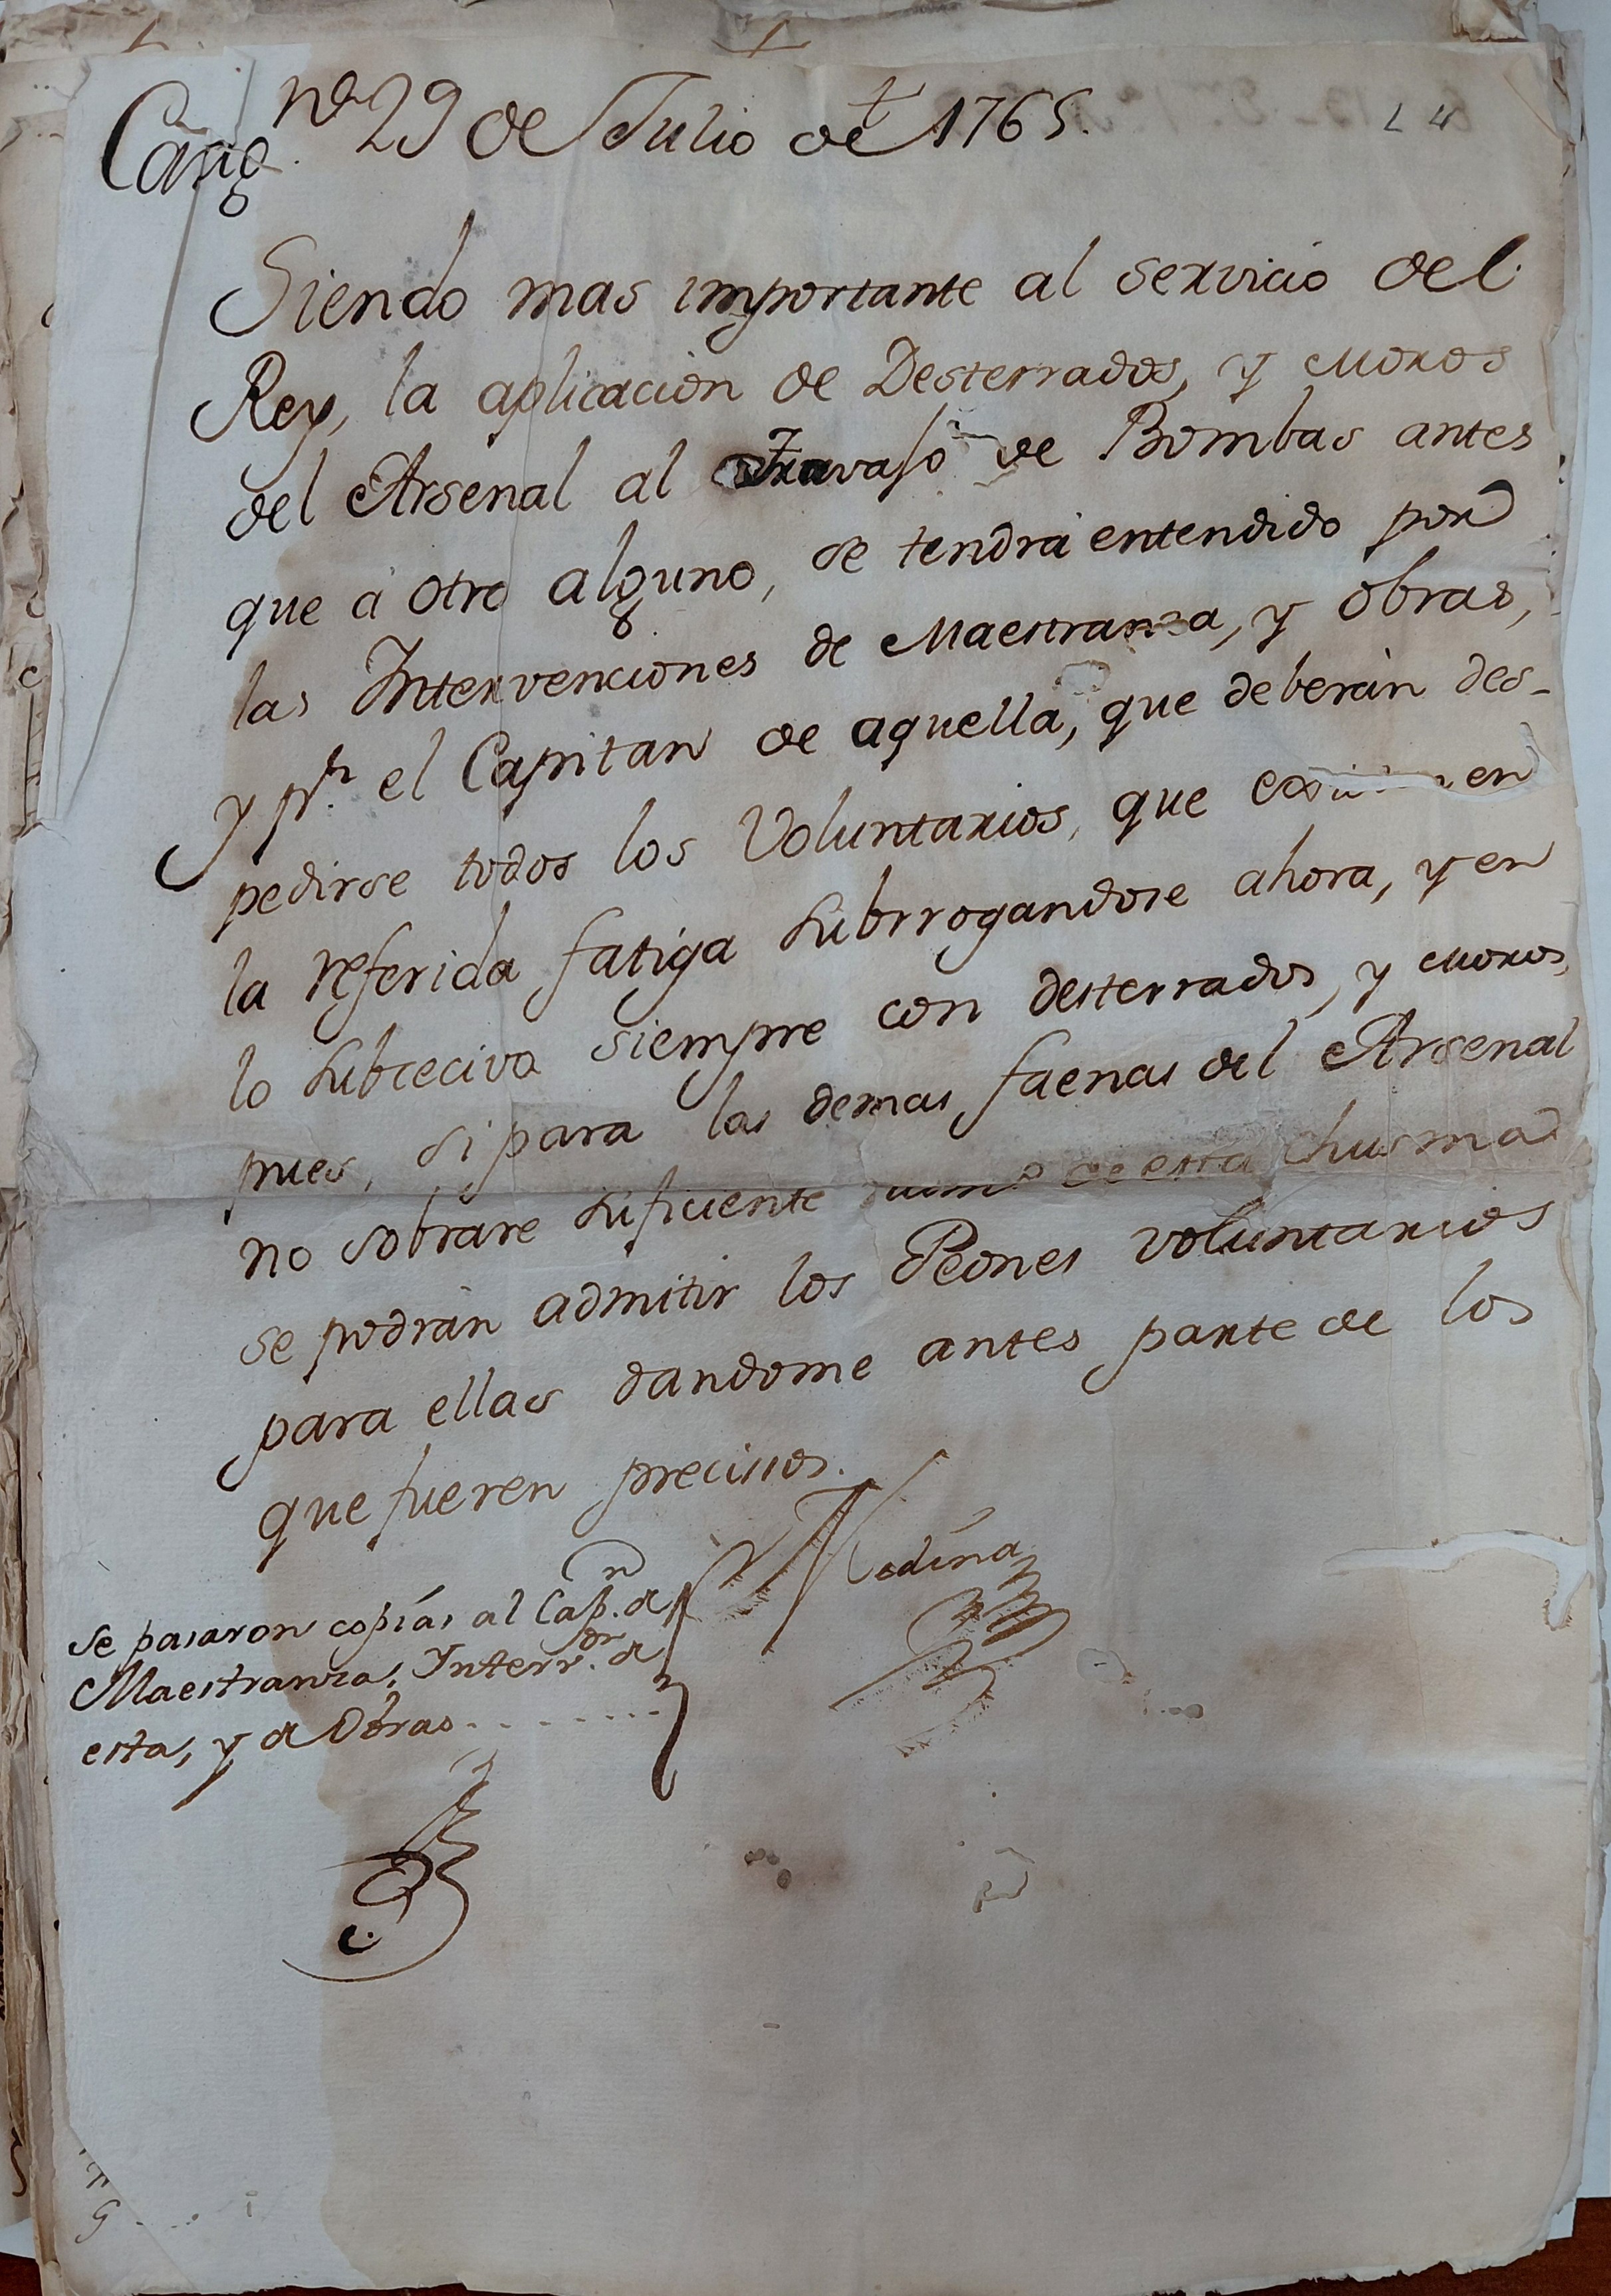 Cartag.na 29 de Julio de 1765.
Siendo mas importante al servicio del
Rey, la aplicacion de Desterrados, y Moros
del Arsenal al Travajo de Bombas antes
que á otro alguno, se tendrá entendido por
las Intervenciones de Maestranza, y Obras,
y pr. el Capitan de aquella, que deberán des-
pedirse todos los Voluntarios, que en
la referida fatiga subrrogandose ahora, y en
lo subcecivo siempre con desterrados, y Moros,
pues, si para las demas faenas del Arsenal
no sobrare suficiente de esta chusma
se podrán admitir los Peones voluntarios
para ellas dandome antes parte de los
que fueren precissos.
Medina
Se pasaron copias al Capn. de
Maestranza, Interv.or de
esta, y de Obras